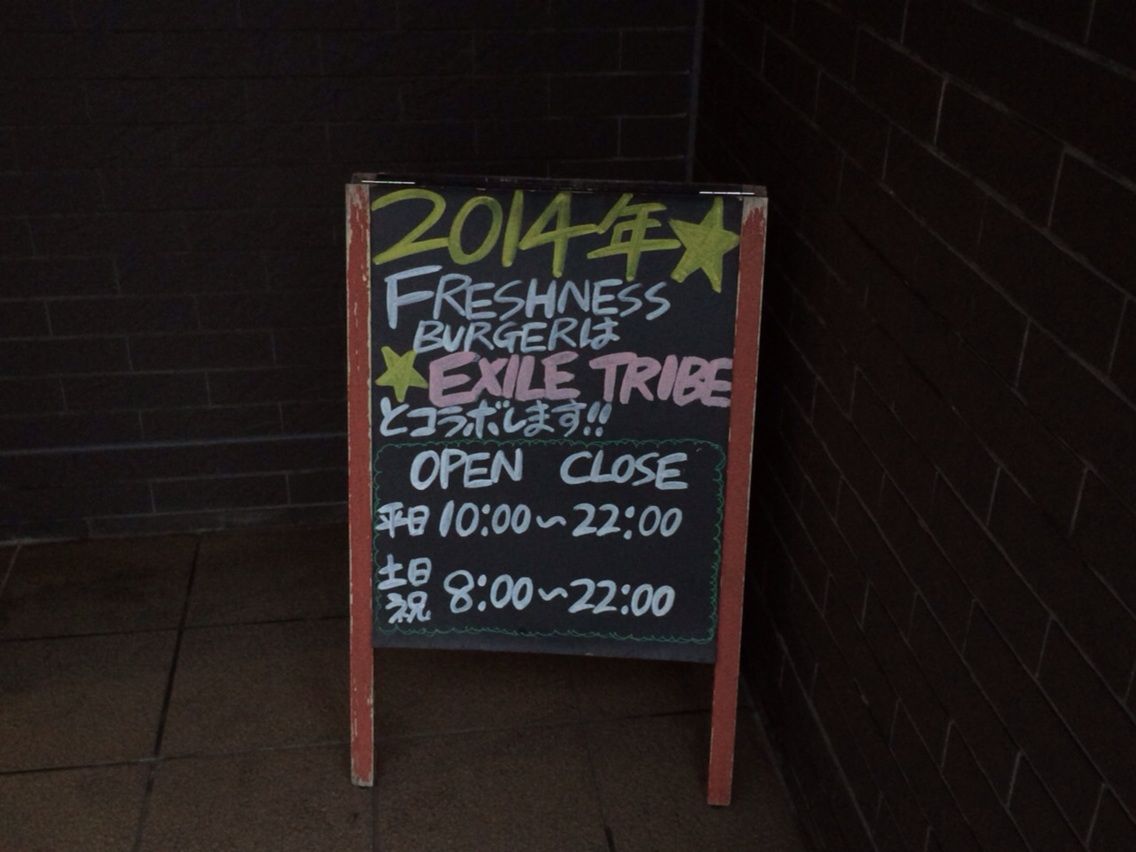 2014年★
FRESHNESS
BURGERは
★EXILE TRIBE
とコラボします!!
OPEN CLOSE
平日 10:00~22:00
土日
祝 8:00~22:00